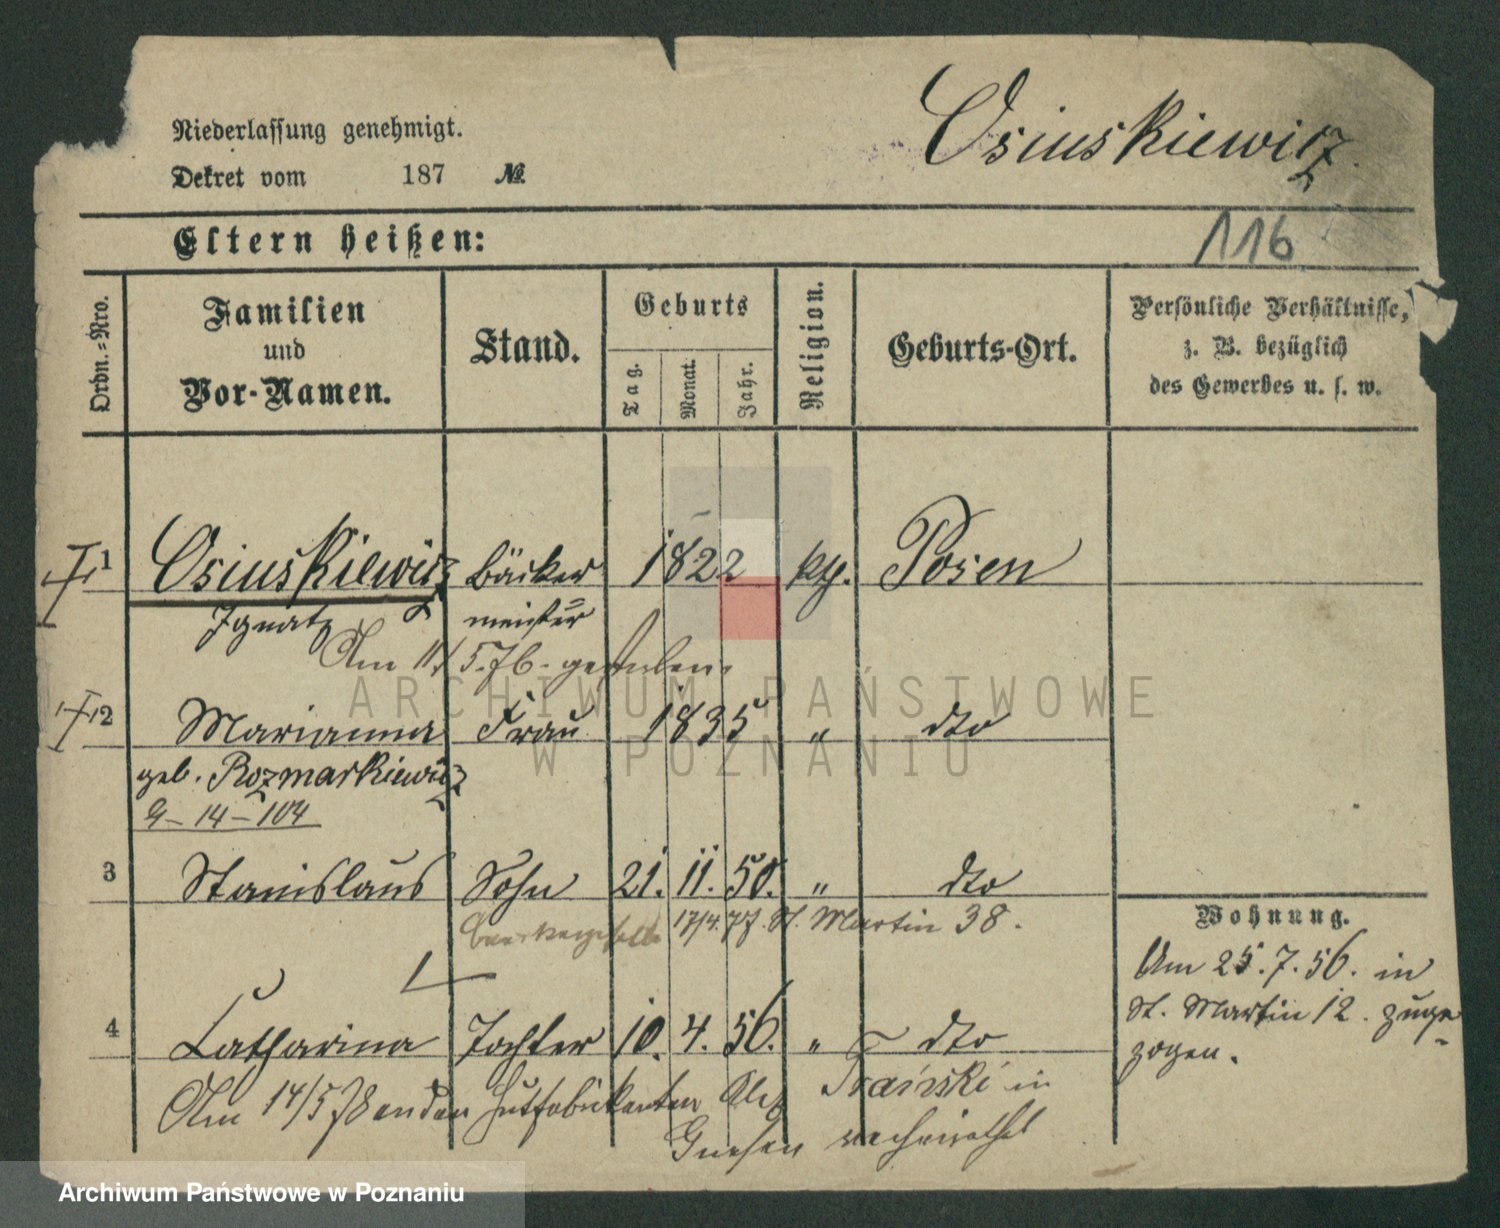 Niederlassung genehmigt.
Dekret vom 187 №
Osiuskiewicz
116
Eltern heißen:
Ordn.-Nro.
Familien
und
Vor-Namen.
Stand.
Geburts
Tag.
Monat.
Jahr.
Religion.
Geburts-Ort.
Persönliche Verhältnisse,
z. B. bezüglich
des Gewerbes u. s. w.
1 Osiuskiewicz Bäcker 1822 kth. Posen
Ignatz meister
Am 11/5.76. gestorben.
2 Marianna Frau 1835 " dto
geb. Rozmarkiewicz
G-14-104
3 Stanislaus Sohn 21. 11. 50. " dto
17/4. 77. St. Martin 38.
4 Catharina Tochter 10. 4. 56. " dto
Am 14/5 78 an den Hutfabrikanten in
Gnesen verheirathet
Wohnung.
Am 25. 7. 56. in
St. Martin 12. zuge-
zogen.
ARCHIWUM PAŃSTWOWE
W POZNANIU
Archiwum Państwowe w Poznaniu